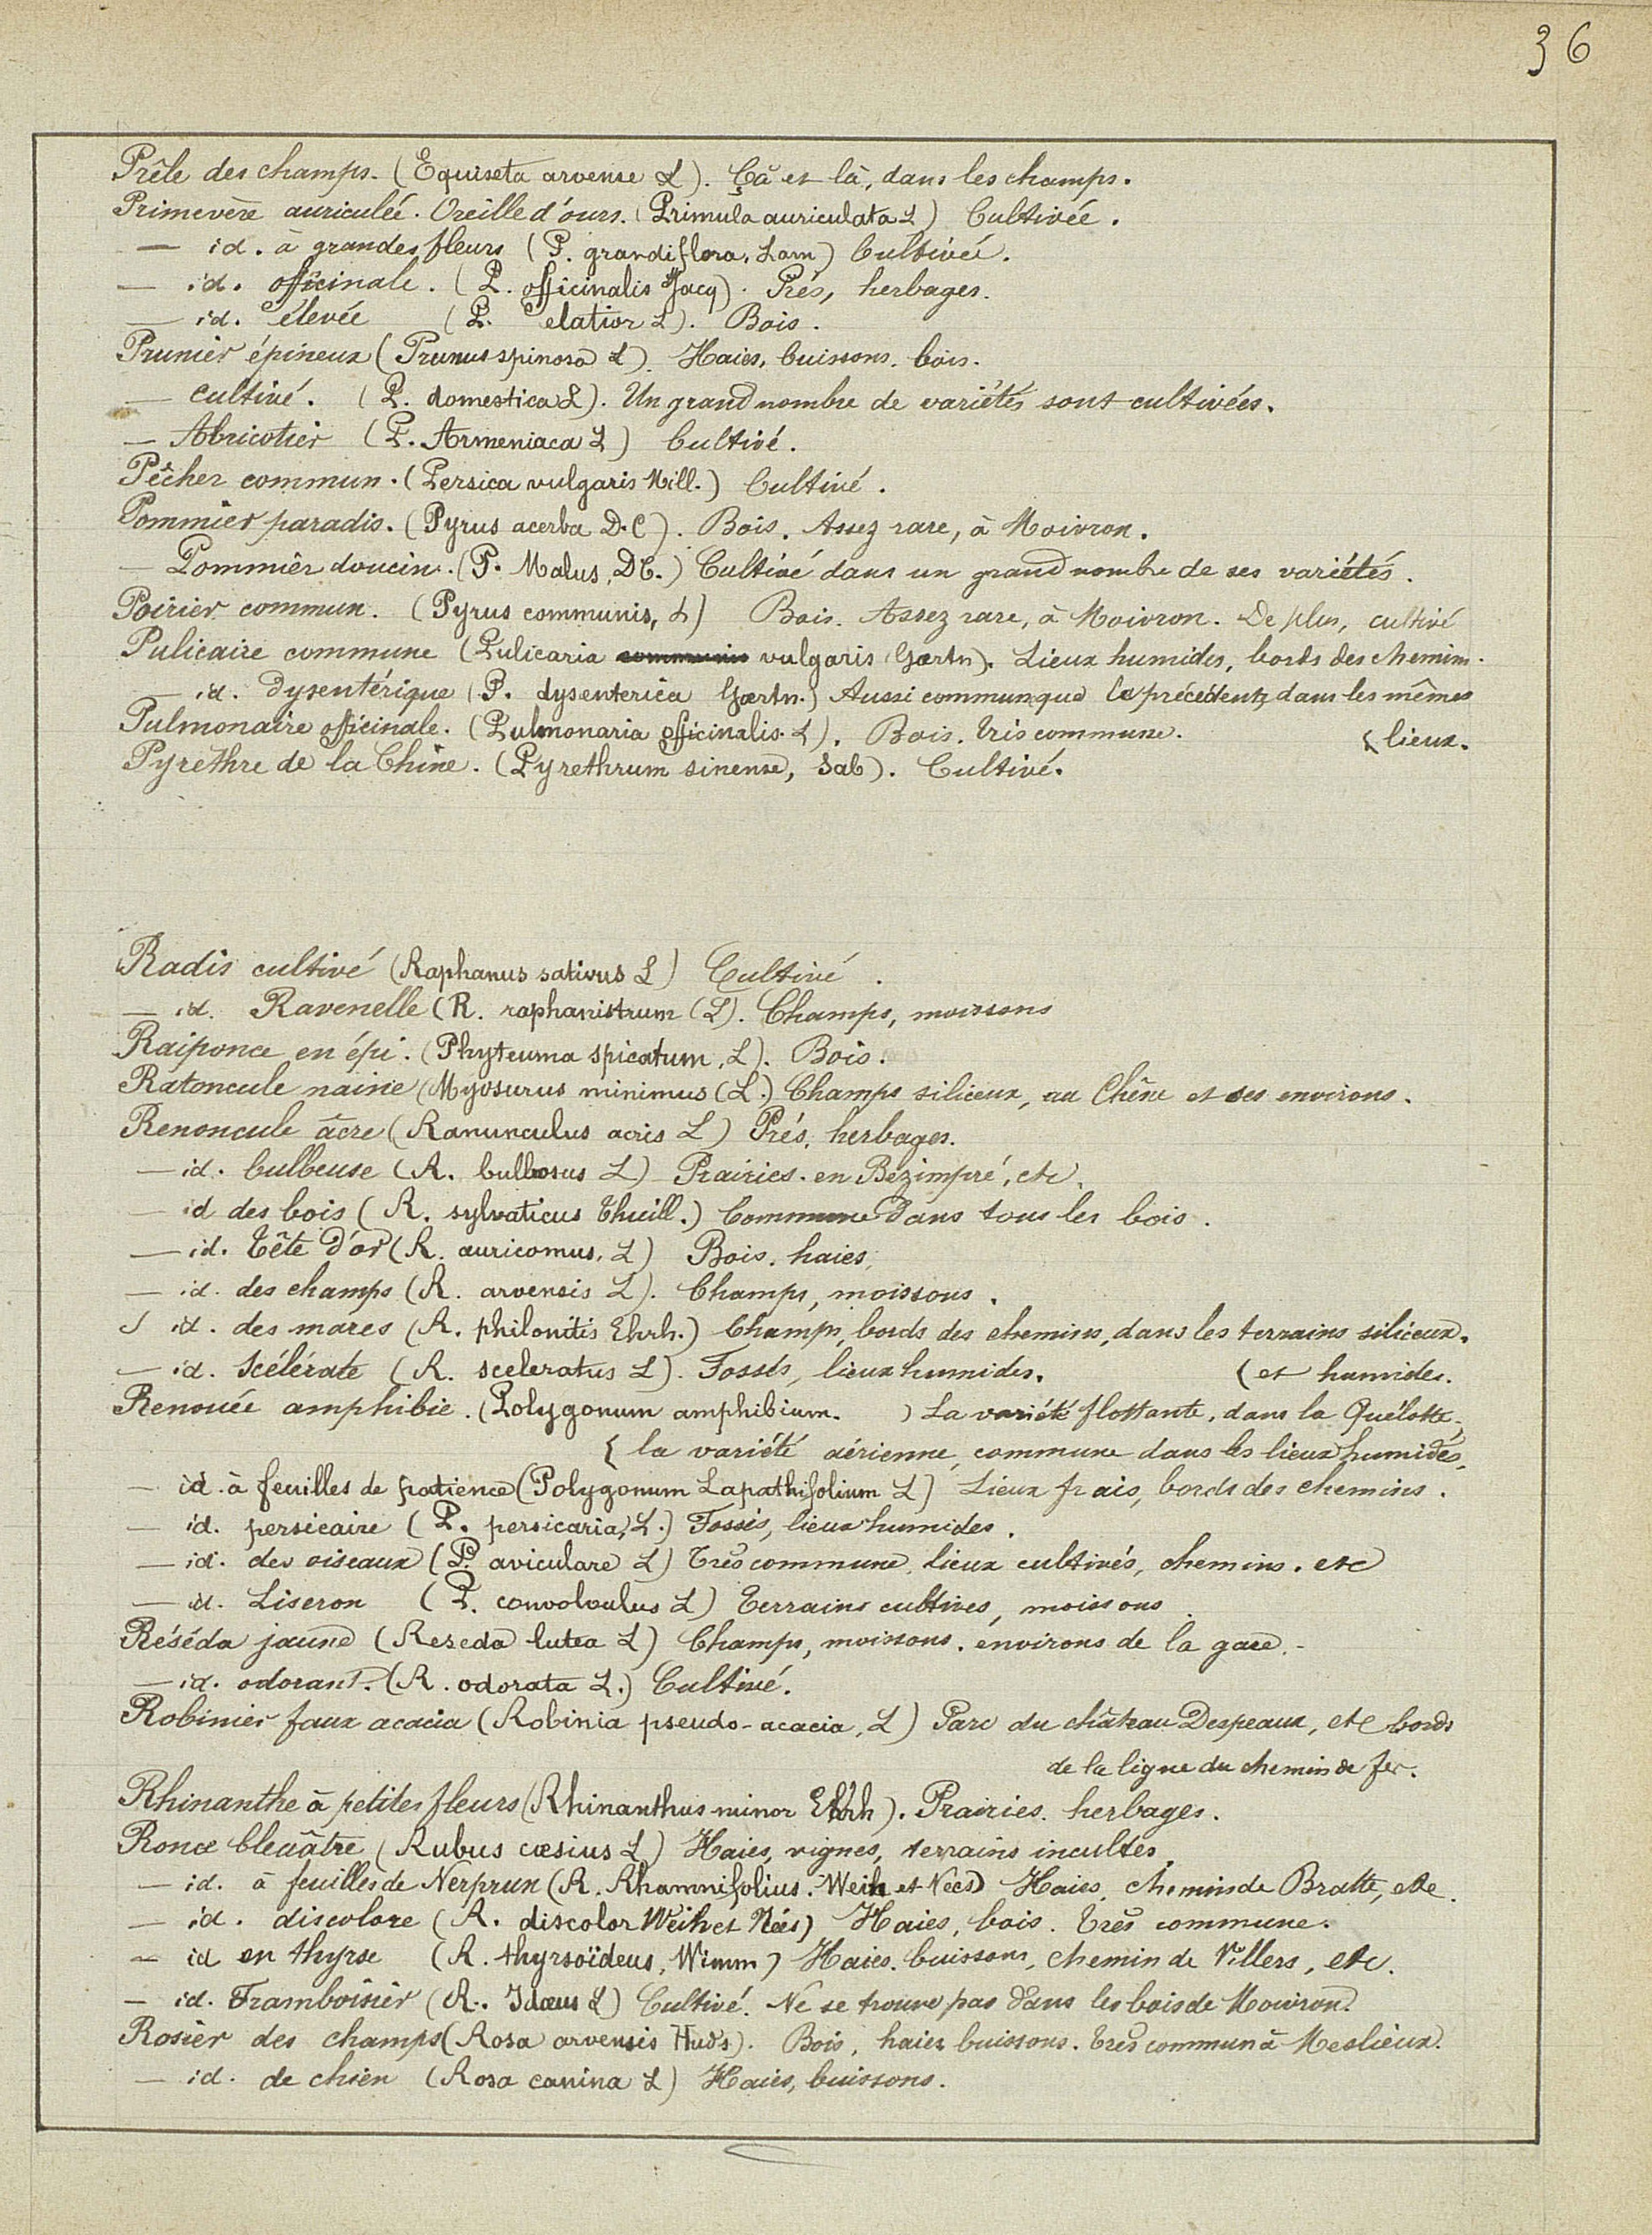 36
Prêle des champs. (Equiseta arvense L). Çà et là, dans les champs.
Primevère auriculée. Oreille d'ours. (Primula auriculata L) Cultivée.
— id. à grandes fleurs (P. grandiflora, Lam) Cultivée.
— id. officinale. (P. officinalis Jacq). Prés, herbages.
— id. élevée (P. elatior L). Bois.
Prunier épineux (Prunus spinosa L). Haies, buissons. bois.
— cultivé. (P. domestica L). Un grand nombre de variétés sont cultivées.
— Abricotier (P. Armeniaca L) Cultivé.
Pêcher commun. (Persica vulgaris Mill.) Cultivé.
Pommier paradis. (Pyrus acerba D.C). Bois. Assez rare, à Moivron.
— Pommier doucin. (P. Malus, DC.) Cultivé dans un grand nombre de ses variétés.
Poirier commun. (Pyrus communis, L) Bois. Assez rare, à Moivron. De plus, cultivé
Pulicaire commune (Pulicaria communis vulgaris Gærtn). Lieux humides, bords des chemins.
— id. Dysentérique (P. dysenterica Gærtn.) Aussi commune que la précédente, dans les mêmes
Pulmonaire officinale. (Pulmonaria officinalis. L). Bois. Très commune. { lieux.
Pyrèthre de la Chine. (Pyrethrum sinense, Sab). Cultivé.
Radis cultivé (Raphanus sativus L) Cultivé.
— id. Ravenelle (R. raphanistrum (L). Champs, moissons
Raiponce en épi. (Phyteuma spicatum, L). Bois.
Ratoncule naine (Myosurus minimus (L.) Champs siliceux, au Chêne et ses environs.
Renoncule âcre (Ranunculus acris L) Prés, herbages.
— id. bulbeuse (R. bulbosus L) Prairies. en Bezimpré, etc.
— id des bois (R. sylvaticus Thuill.) Commune dans tous les bois.
— id. Tête d'or (R. auricomus, L) Bois. haies.
— id. des champs (R. arvensis L). Champs, moissons.
— id. des mares (R. philonitis Ehrh.) Champs, bords des chemins, dans les terrains siliceux.
— id. Scélérate (R. sceleratus L). Fossés, lieux humides. (et humides.
Renouée amphibie. (Polygonum amphibium. ) La variété flottante, dans la Quélotte,
{ la variété aérienne, commune dans les lieux humides.
— id. à feuilles de patience (Polygonum Lapathifolium L) Lieux frais, bords des chemins.
— id. persicaire (P. persicaria, L.) Fossés, lieux humides.
— id. des oiseaux (P. aviculare L) Très commune, lieux cultivés, chemins. etc
— id. Liseron (P. convolvulus L) Terrains cultivés, moissons
Réséda jaune (Reseda lutea L) Champs, moissons. environs de la gare.
— id. odorant. (R. odorata L.) Cultivé.
Robinier faux acacia (Robinia pseudo-acacia, L) Parc du château Despeaux, etc bords
de la ligne du chemin de fer.
Rhinanthe à petites fleurs (Rhinanthus minor Ehrh). Prairies. herbages.
Ronce bleuâtre (Rubus cæsius L) Haies, vignes, terrains incultes.
— id. à feuilles de Nerprun (R. Rhamnifolius. Weih et Nees) Haies, chemins de Bratte, etc.
— id. discolore (R. discolor Weih et Nées) Haies, bois. Très commune.
— id en thyrse (R. thyrsoïdeus, Wimm) Haies. buissons, chemin de Villers, etc.
— id. Framboisier (R. Idæus L) Cultivé. Ne se trouve pas dans les bois de Moivron.
Rosier des champs (Rosa arvensis Huds). Bois, haies buissons. Très commun à Meslieux.
— id. de chien (Rosa canina L) Haies, buissons.